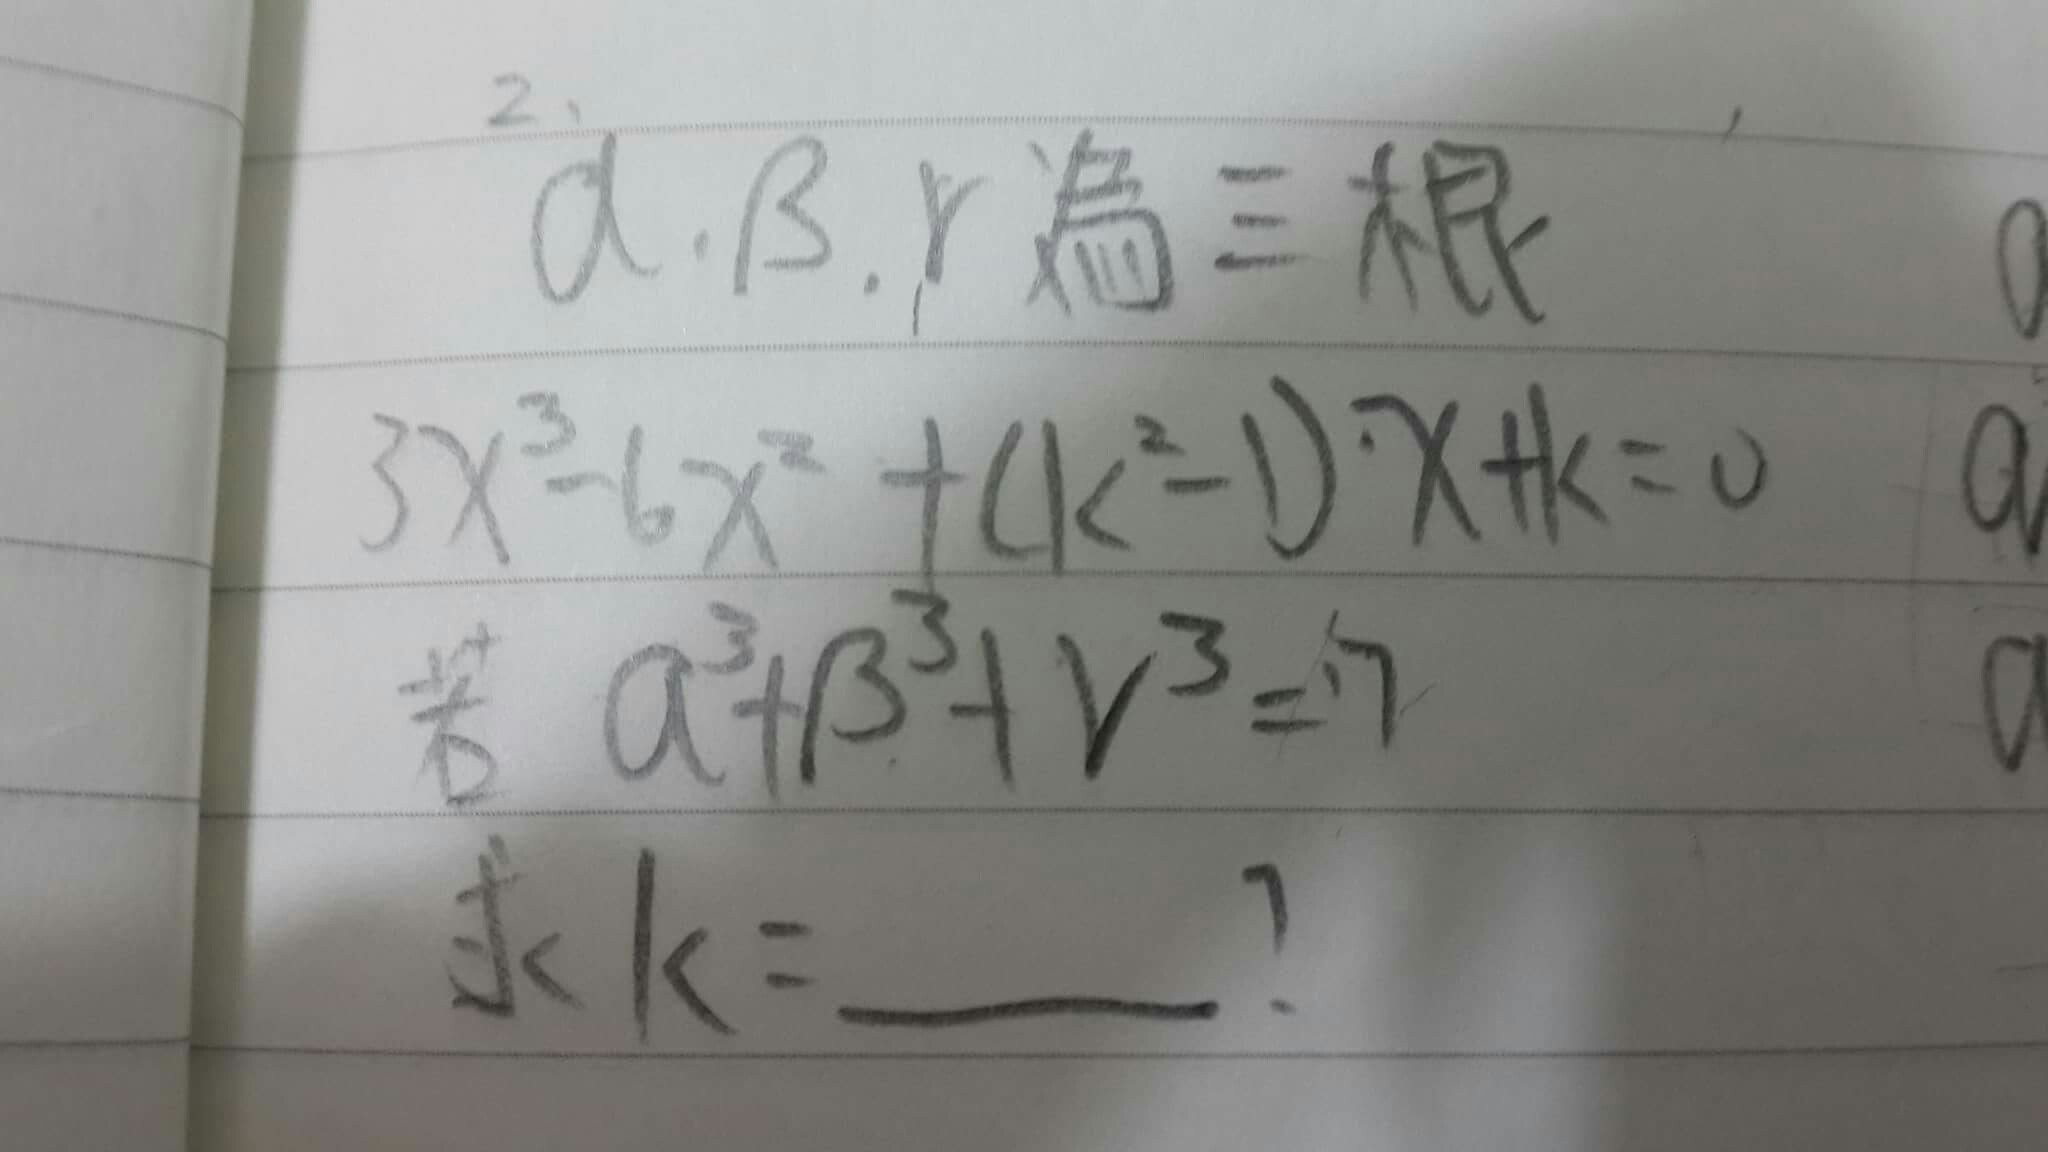 2.
α.β.γ為三根
3x³-6x²+(k²-1)·x+k=0
若 α³+β³+γ³=7
求 k=____?